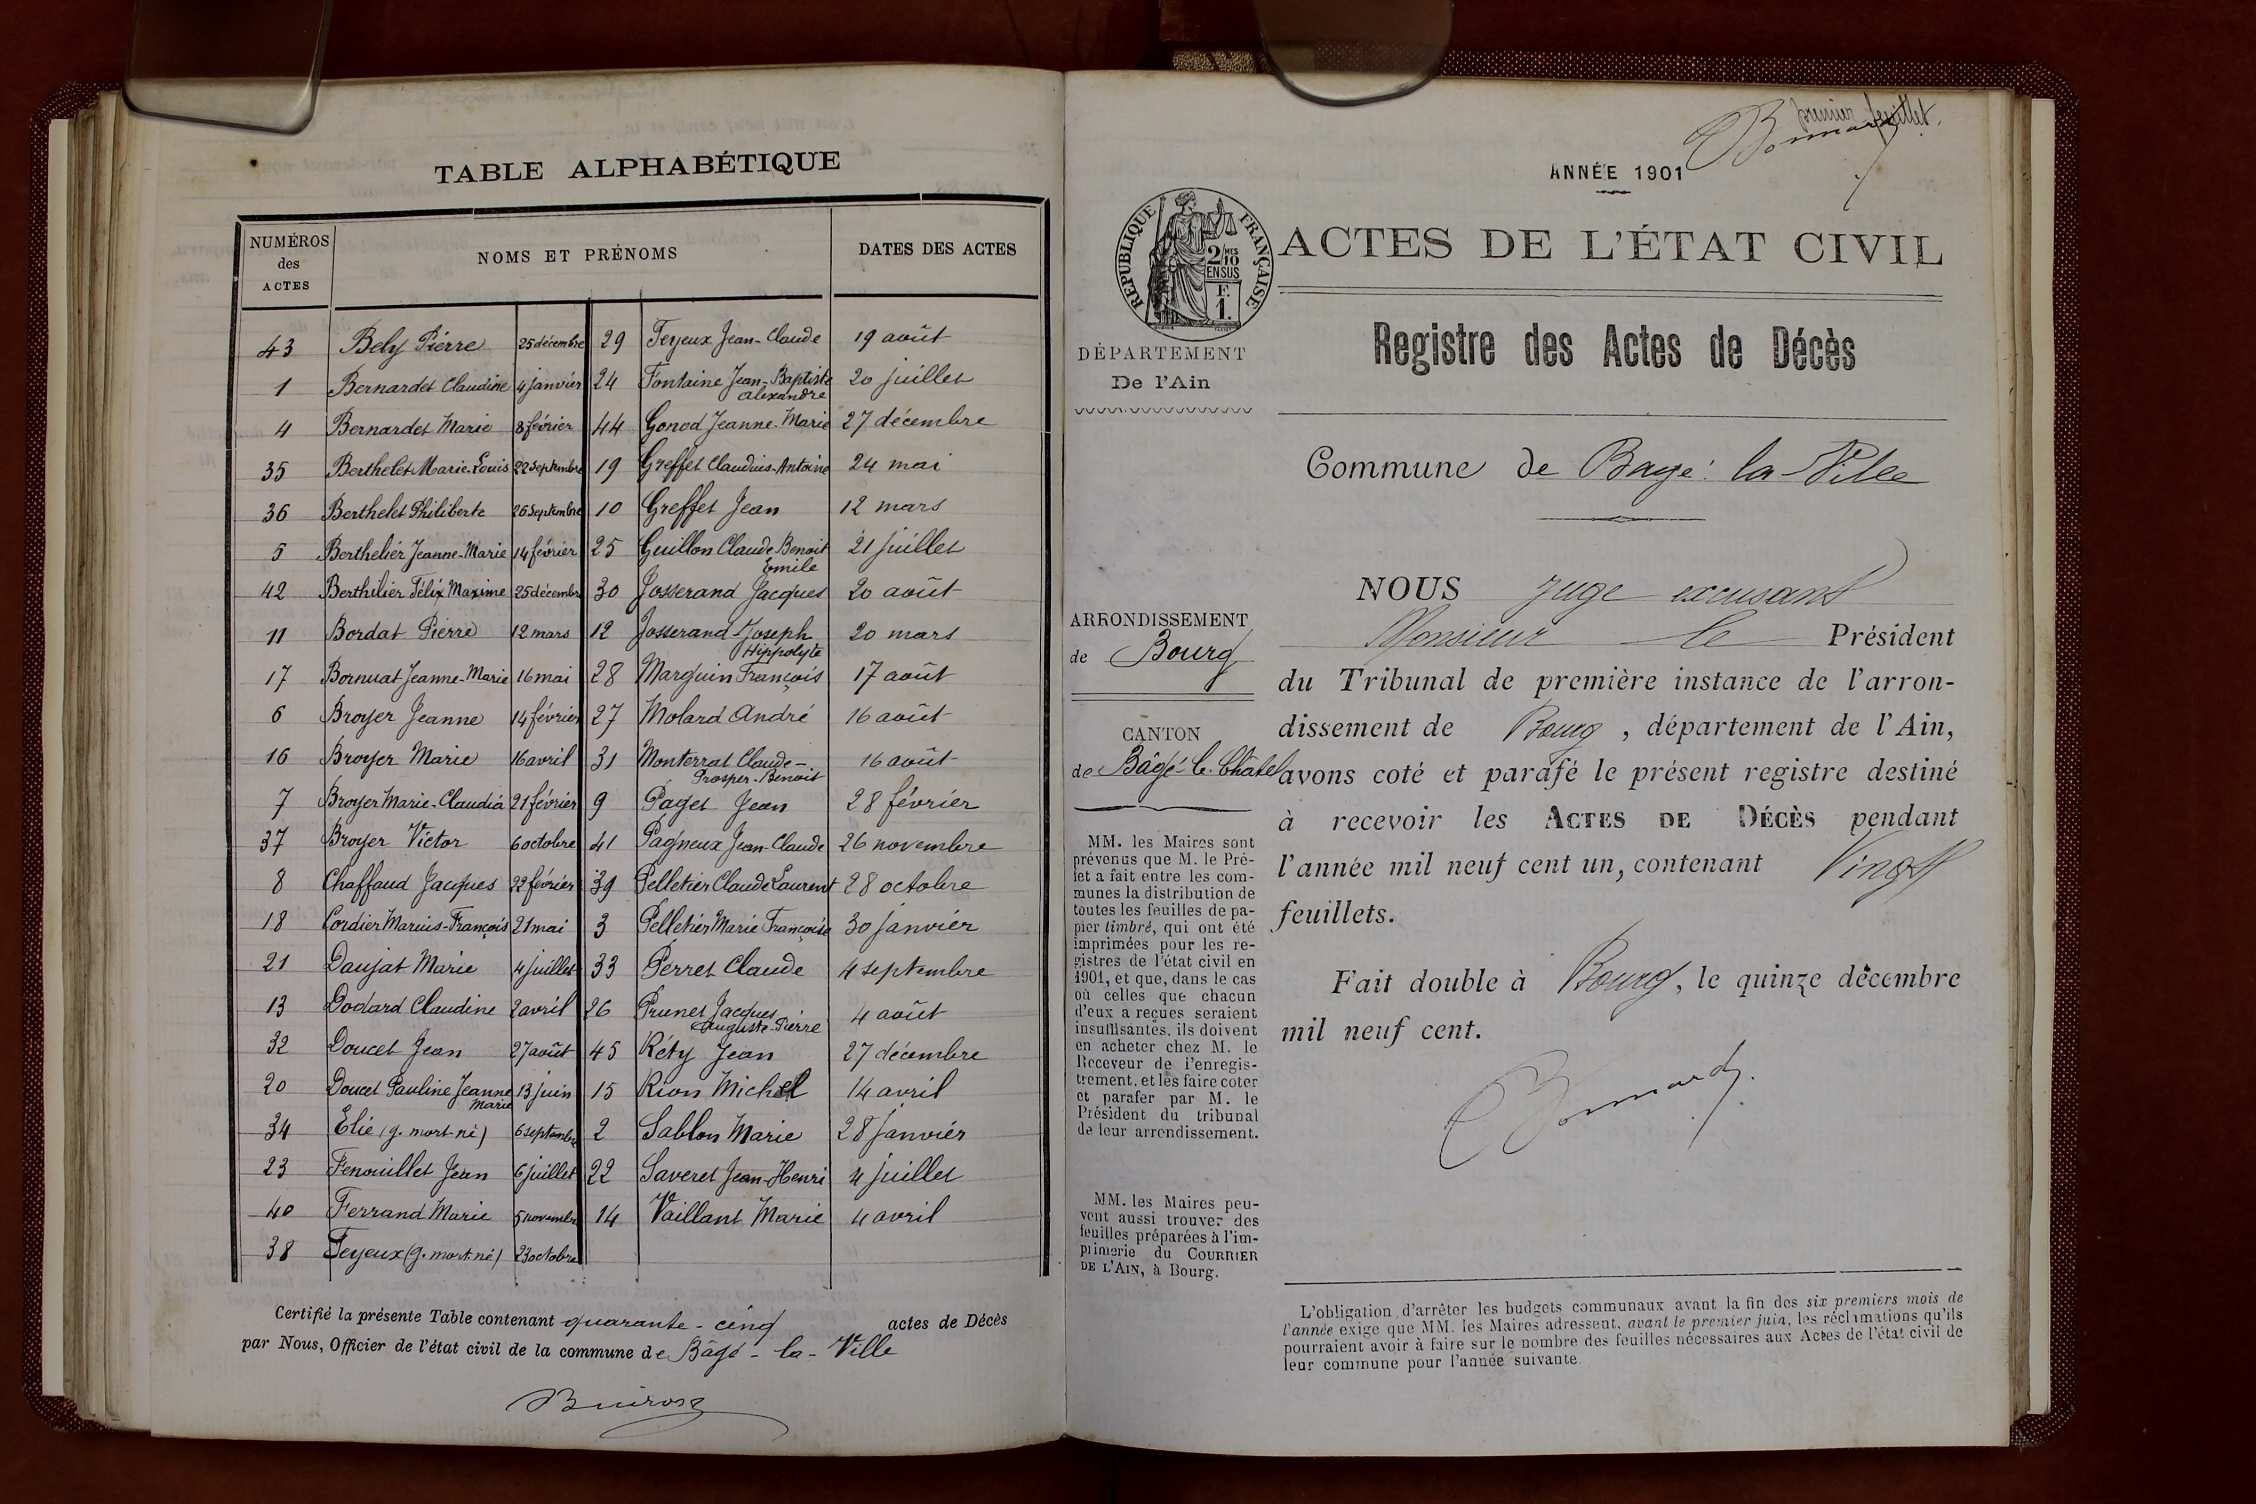 TABLE ALPHABÉTIQUE
NUMÉROS
des
ACTES
NOMS ET PRÉNOMS
DATES DES ACTES
43 Bely Pierre 25 décembre 29 Feyeux Jean-Claude 19 août
1 Bernardet Claudine 4 janvier 24 Fontaine Jean-Baptiste 20 juillet
Alexandre
4 Bernardet Marie 8 février 44 Gonod Jeanne-Marie 27 décembre
35 Berthelet Marie-Louis 22 septembre 19 Greffet Claudius-Antoine 24 mai
36 Berthelet Philiberte 26 septembre 10 Greffet Jean 12 mars
5 Berthelier Jeanne-Marie 14 février 25 Guillon Claude Benoit 21 juillet
Emile
42 Berthilier Félix Maxime 25 décembre 30 Josserand Jacques 20 août
11 Bordat Pierre 12 mars 12 Josserand Joseph 20 mars
Hippolyte
17 Bornuat Jeanne-Marie 16 mai 28 Marguin François 17 août
6 Broyer Jeanne 14 février 27 Molard André 16 août
16 Broyer Marie 16 avril 31 Monterrat Claude- 16 août
Prosper-Benoit
7 Broyer Marie-Claudia 21 février 9 Paget Jean 28 février
37 Broyer Victor 6 octobre 41 Pagneux Jean-Claude 26 novembre
8 Chaffaud Jacques 22 février 39 Pelletier Claude Laurent 28 octobre
18 Cordier Marius-François 21 mai 3 Pelletier Marie Françoise 30 janvier
21 Daujat Marie 4 juillet 33 Perret Claude 4 septembre
13 Dodard Claudine 2 avril 26 Prunet Jacques 4 août
Auguste-Pierre
32 Doucet Jean 27 août 45 Réty Jean 27 décembre
20 Doucet Pauline Jeanne 13 juin 15 Rion Michel 14 avril
Marie
34 Elie (g. mort-né) 6 septembre 2 Sablon Marie 28 janvier
23 Fenouillet Jean 6 juillet 22 Saveret Jean-Henri 4 juillet
40 Ferrand Marie 5 novembre 14 Vaillant Marie 4 avril
38 Feyeux (g. mort-né) 23 octobre
Certifié la présente Table contenant quarante-cinq actes de Décès
par Nous, Officier de l'état civil de la commune de Bâgé-la-Ville
premier feuillet.
Bonnard
ANNÉE 1901
RÉPUBLIQUE FRANÇAISE
2/10
EN SUS
F.
1.
ACTES DE L'ÉTAT CIVIL
Registre des Actes de Décès
DÉPARTEMENT
De l'Ain
Commune de Bagé-la-Ville
ARRONDISSEMENT
de Bourg
CANTON
de Bâgé-le-Châtel
MM. les Maires sont
prévenus que M. le Pré-
fet a fait entre les com-
munes la distribution de
toutes les feuilles de pa-
pier timbré, qui ont été
imprimées pour les re-
gistres de l'état civil en
1901, et que, dans le cas
où celles que chacun
d'eux a reçues seraient
insuffisantes, ils doivent
en acheter chez M. le
Receveur de l'enregis-
trement, et les faire coter
et parafer par M. le
Président du tribunal
de leur arrondissement.
MM. les Maires peu-
vent aussi trouver des
feuilles préparées à l'im-
primerie du COURRIER
DE L'AIN, à Bourg.
NOUS Juge excusant
Monsieur le Président
du Tribunal de première instance de l'arron-
dissement de Bourg, département de l'Ain,
avons coté et parafé le présent registre destiné
à recevoir les ACTES DE DÉCÈS pendant
l'année mil neuf cent un, contenant Vingt
feuillets.
Fait double à Bourg, le quinze décembre
mil neuf cent.
Bonnard
L'obligation d'arrêter les budgets communaux avant la fin des six premiers mois de
l'année exige que MM. les Maires adressent, avant le premier juin, les réclamations qu'ils
pourraient avoir à faire sur le nombre des feuilles nécessaires aux Actes de l'état civil de
leur commune pour l'année suivante.